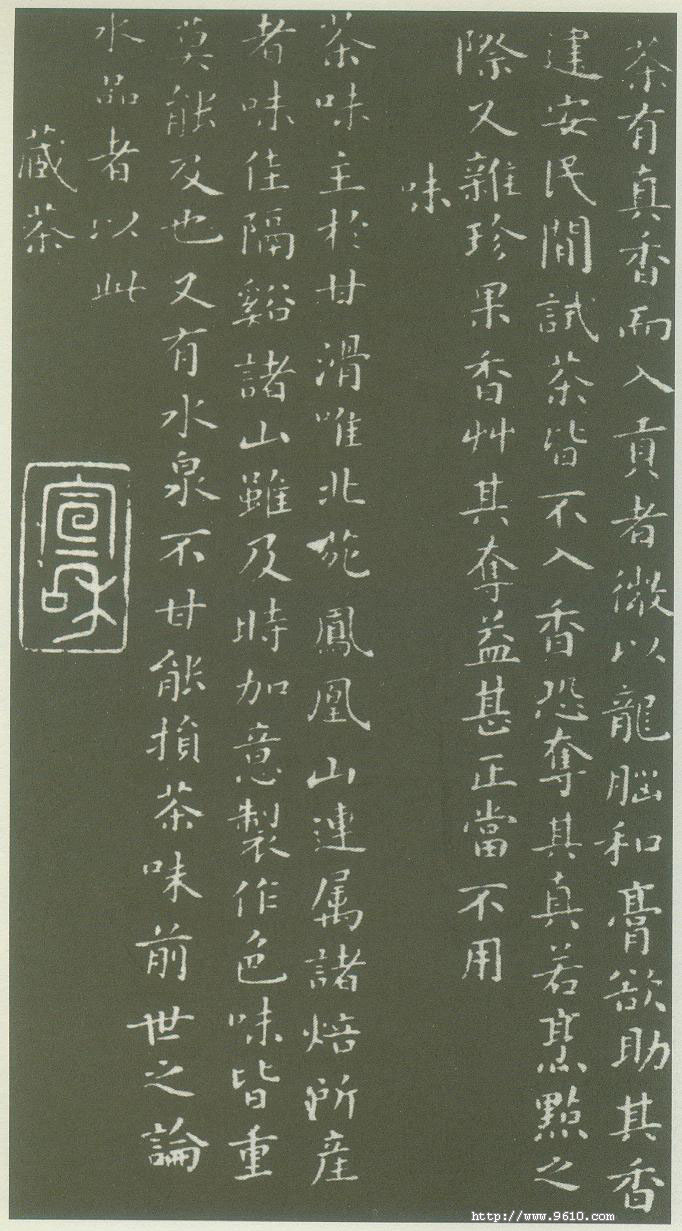 茶有真香而入貢者微以龍腦和膏欲助其香
建安民間試茶皆不入香恐奪其真若烹點之
際又雜珍果香艸其奪益甚正當不用
味
茶味主於甘滑唯北苑鳳凰山連属諸焙所產
者味佳隔谿諸山雖及時加意製作色味皆重
莫能及也又有水泉不甘能損茶味前世之論
水品者以此
藏茶
宣和
http://www.9610.com